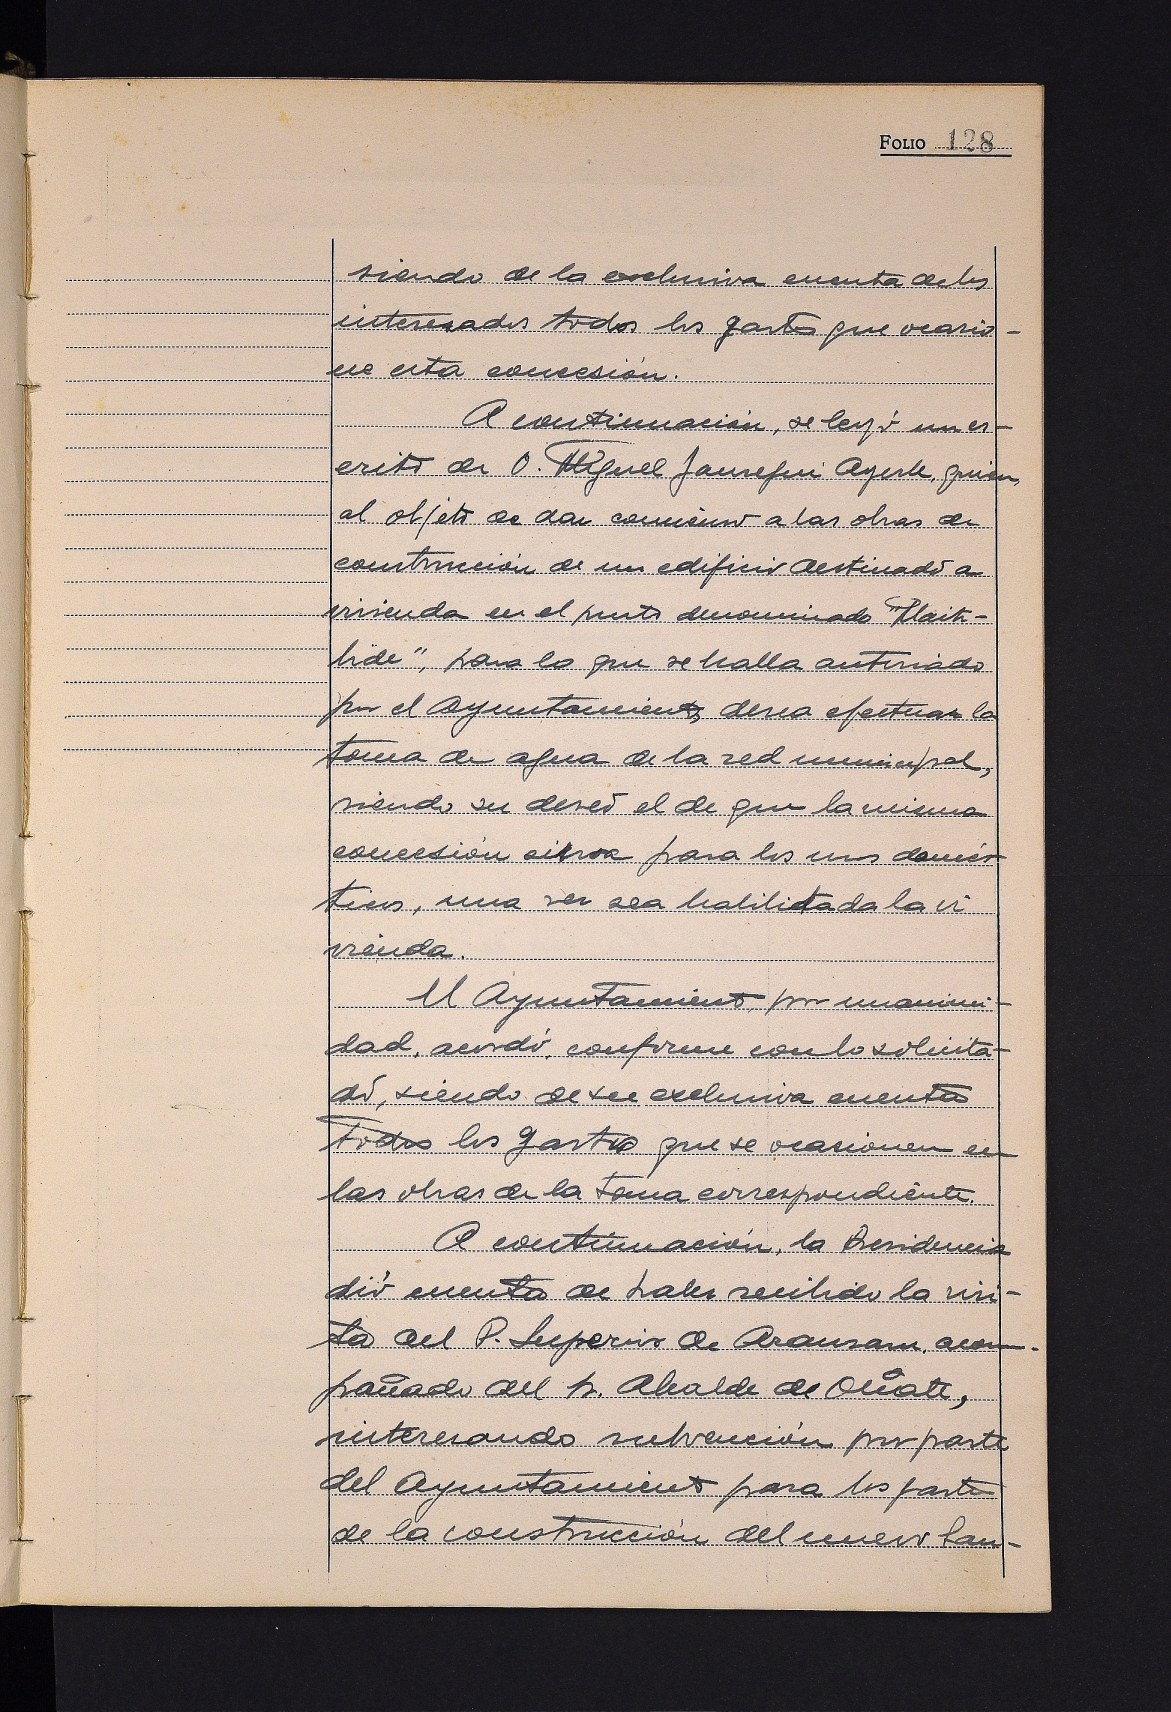 FOLIO 128
siendo de la exclusiva cuenta de los
interesados todos los gastos que ocasio-
ne esta concesión.
A continuación, se leyó un es-
crito de D. Miguel Jauregui Ayerbe, quien,
al objeto de dar comienzo a las obras de
construcción de un edificio destinado a
vivienda en el punto denominado
para lo que se halla autorizado
por el Ayuntamiento, desea efectuar la
toma de agua de la red municipal,
siendo su deseo el de que la misma
concesión sirva para los usos domés-
ticos, una vez sea habilitada la vi
vienda.
El Ayuntamiento, por unanimi-
dad, acordó, conforme con lo solicita-
do, siendo de su exclusiva cuenta
todos los gastos que se ocasionen en
las obras de la toma correspondiente.
A continuación, la Presidencia
dió cuenta de haber recibido la visi-
ta del P. Superior de Aranzazu, acom-
pañado del Sr. Alcalde de Oñate,
interesando subvención por parte
del Ayuntamiento para los gastos
de la construcción del nuevo San-